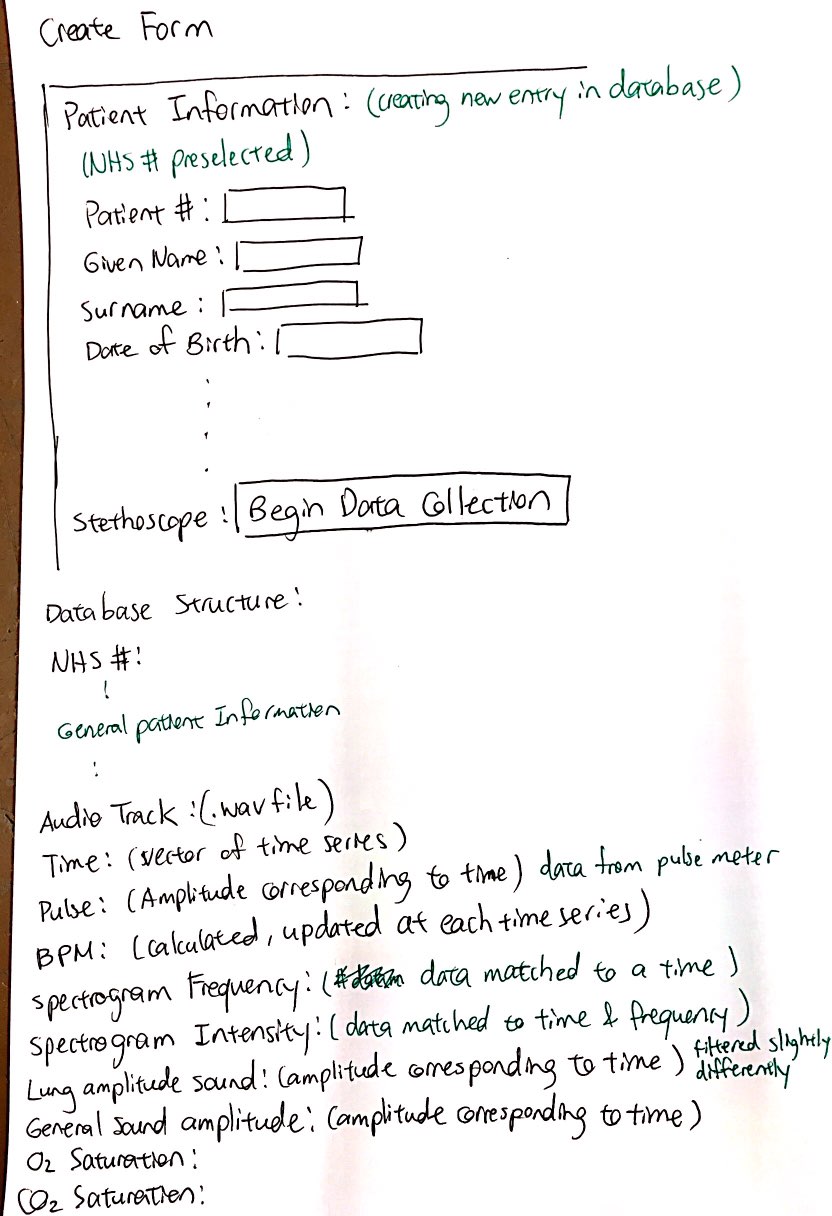 Create Form
Patient Information: (creating new entry in database)
(NHS # preselected)
Patient #:
Given Name:
Surname:
Date of Birth:
Stethoscope: Begin Data Collection
Database Structure:
NHS #:
General patient Information
Audio Track: (.wav file)
Time: (vector of time series)
Pulse: (Amplitude corresponding to time) data from pulse meter
BPM: (calculated, updated at each time series)
Spectrogram Frequency: (# data matched to a time)
Spectrogram Intensity: (data matched to time & frequency)
Lung amplitude sound: (amplitude corresponding to time) filtered slightly differently
General sound amplitude: (amplitude corresponding to time)
O2 Saturation:
CO2 Saturation: